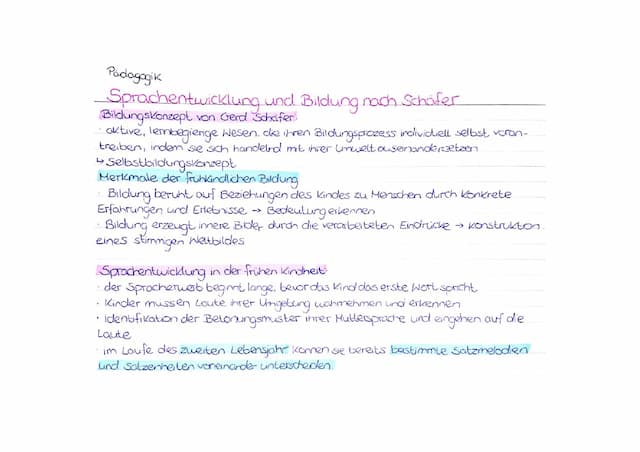 Pädagogik
Sprachentwicklung und Bildung nach Schäfer
Bildungskonzept von Gerd Schäfer
· aktive, lernbegierige Wesen, die ihren Bildungsprozess individuell selbst voran-
treiben, indem sie sich handelnd mit ihrer Umwelt auseinandersetzen
↳ Selbstbildungskonzept
Merkmale der frühkindlichen Bildung
· Bildung beruht auf Beziehungen des Kindes zu Menschen durch konkrete
Erfahrungen und Erlebnisse → Bedeutung erkennen
· Bildung erzeugt innere Bilder durch die verarbeiteten Eindrücke → Konstruktion
eines stimmigen Weltbildes
Sprachentwicklung in der frühen Kindheit
· der Spracherwerb beginnt lange, bevor das Kind das erste Wort spricht
· Kinder müssen Laute ihrer Umgebung wahrnehmen und erkennen
· Identifikation der Betonungsmuster ihrer Muttersprache und eingehen auf die
Laute
· im Laufe des zweiten Lebensjahr können sie bereits bestimmte Satzmelodien
und Satzeinheiten voneinander unterscheiden